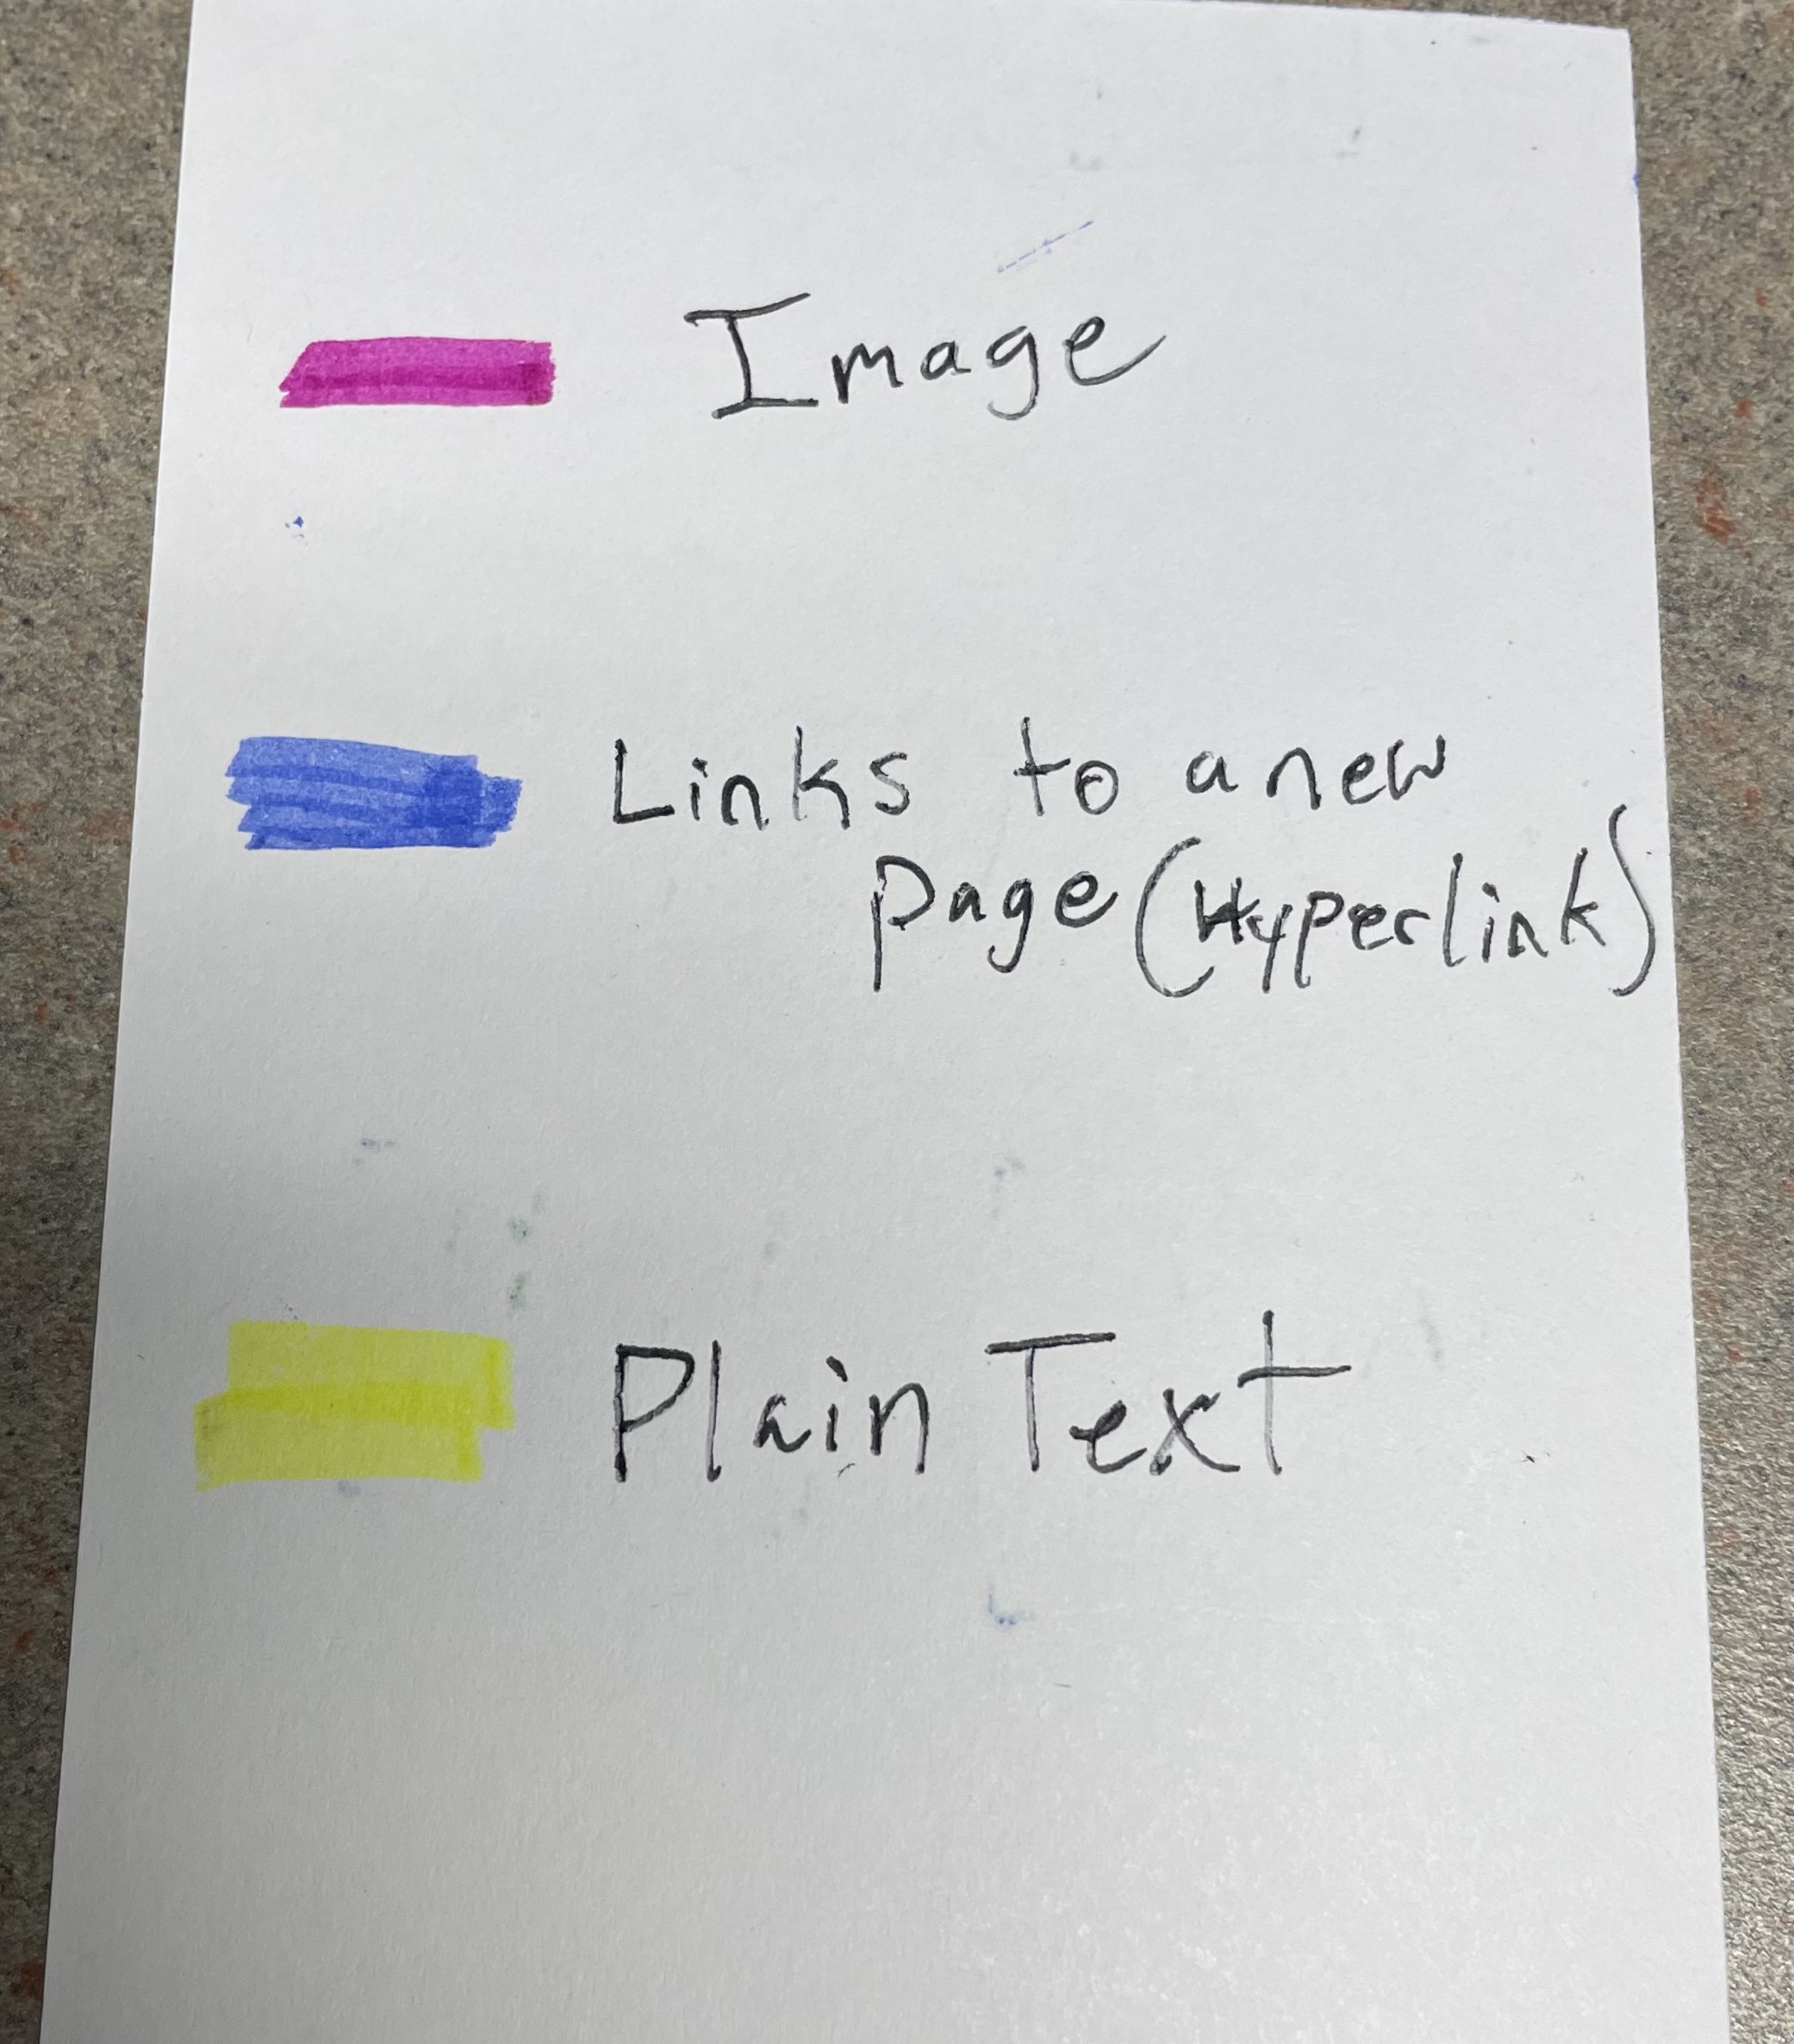 Image
Links to a new
page (Hyperlink)
Plain Text